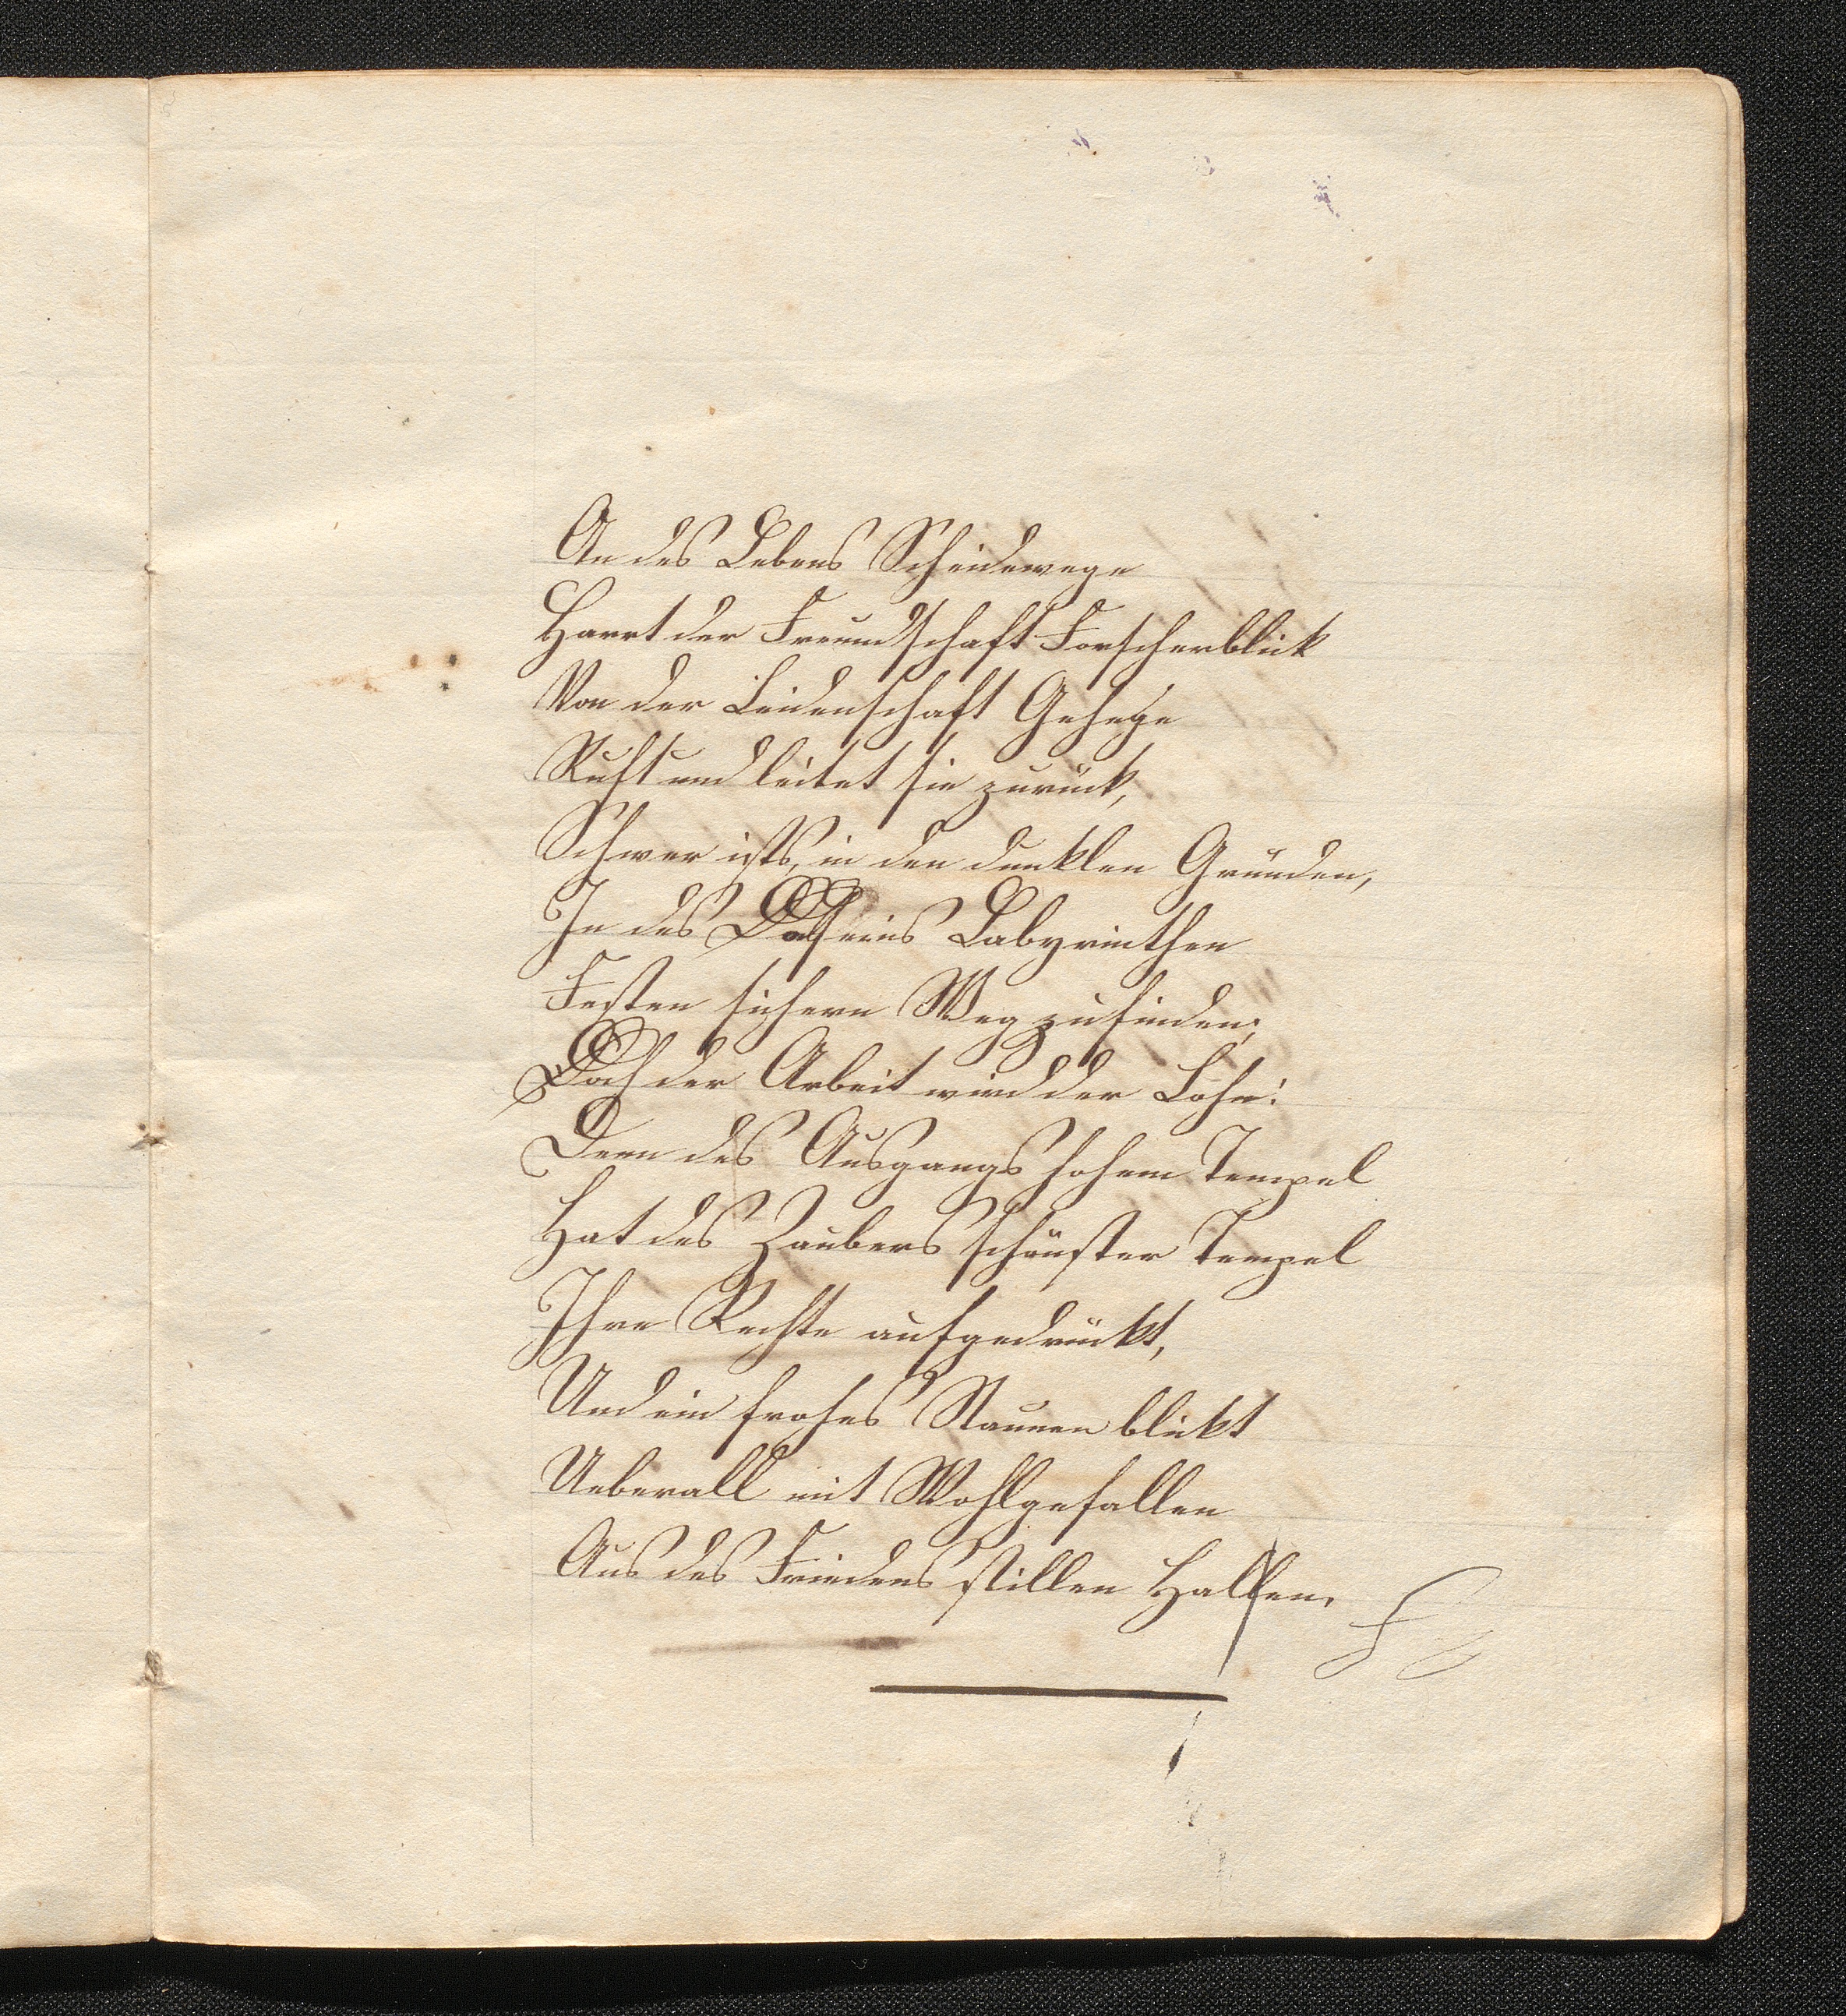 An des Lebens Scheidewege
Harrt der Freundschaft Forscherblick
Von der Leidenschaft Gehege
Ruft und leitet sie zurück,
Schwer ists, in den dunklen Gründen,
In des Daseins Labyrinthen
Festen sichern Weg zu finden;
Doch der Arbeit wird der Lohn:
Denn des Ausgangs hohem Tempel
Hat des Zaubers schönster Tempel
Ihre Rechte aufgedrückt,
Und ein frohes Staunen blickt
Ueberall mit Wohlgefallen
Aus des Friedens stillen Hallen.